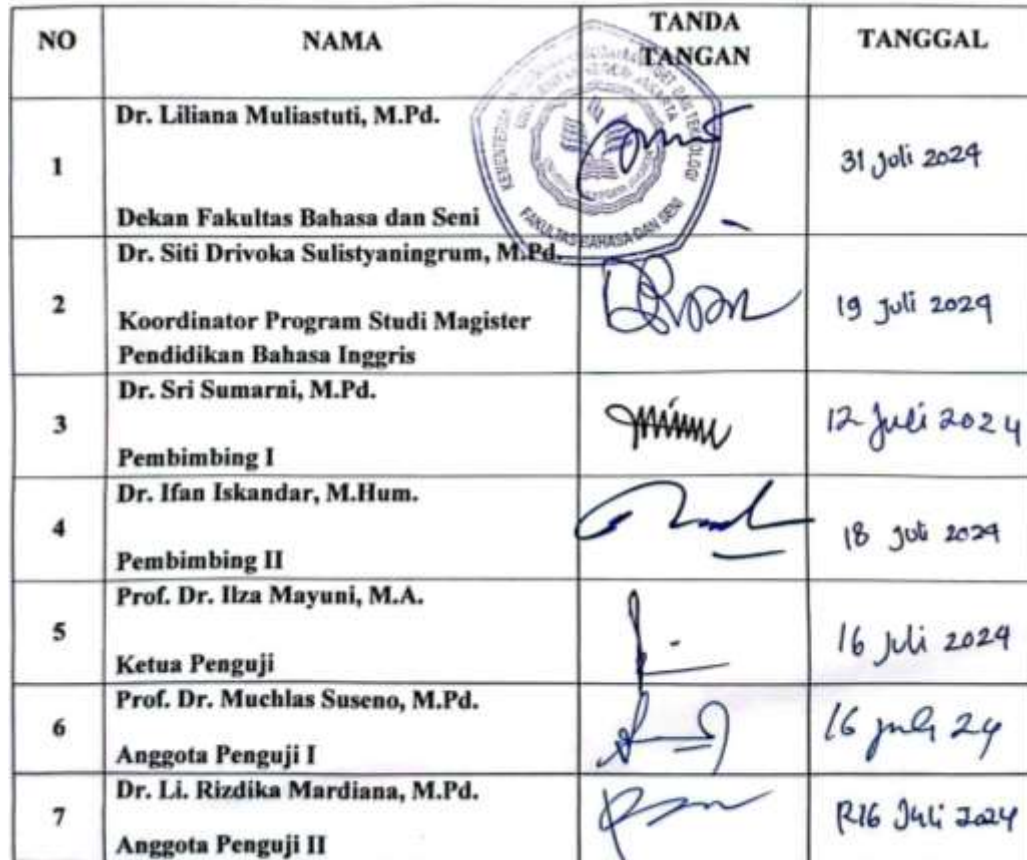 NO NAMA TANDA TANGAN TANGGAL
KEMENTERIAN RISET DAN TEKNOLOGI
JAKARTA
FAKULTAS BAHASA DAN SENI
1
Dr. Liliana Muliastuti, M.Pd.
Dekan Fakultas Bahasa dan Seni
31 Juli 2024
2
Dr. Siti Drivoka Sulistyaningrum, M.Pd.
Koordinator Program Studi Magister
Pendidikan Bahasa Inggris
19 Juli 2024
3
Dr. Sri Sumarni, M.Pd.
Pembimbing I
12 Juli 2024
4
Dr. Ifan Iskandar, M.Hum.
Pembimbing II
18 Juli 2024
5
Prof. Dr. Ilza Mayuni, M.A.
Ketua Penguji
16 Juli 2024
6
Prof. Dr. Muchlas Suseno, M.Pd.
Anggota Penguji I
16 July 24
7
Dr. Li. Rizdika Mardiana, M.Pd.
Anggota Penguji II
16 Juli 2024